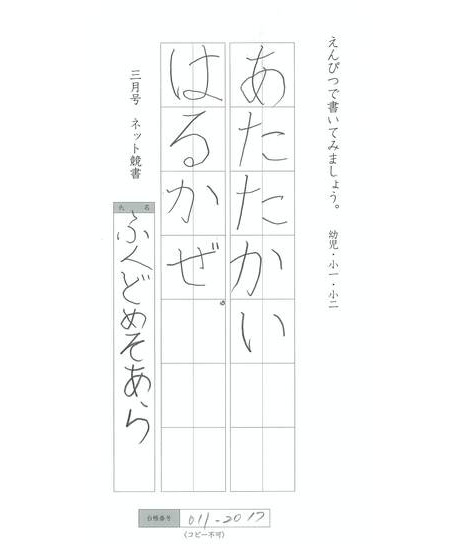 えんぴつで書いてみましょう。 幼児・小一・小二
あたたかい
はるかぜ
三月号 ネット競書
氏名
ふくどめそあら
台帳番号 011-2017
(コピー不可)